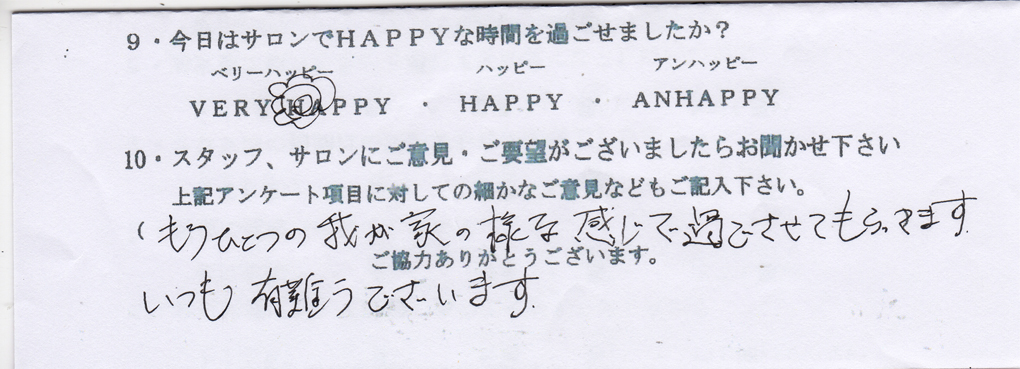 9・今日はサロンでHAPPYな時間を過ごせましたか？
ベリーハッピー　ハッピー　アンハッピー
VERY HAPPY ・ HAPPY ・ ANHAPPY
10・スタッフ、サロンにご意見・ご要望がございましたらお聞かせ下さい
上記アンケート項目に対しての細かなご意見などもご記入下さい。
もうひとつの我が家の様な感じで過ごさせてもらってます
ご協力ありがとうございます。
いつも有難うございます